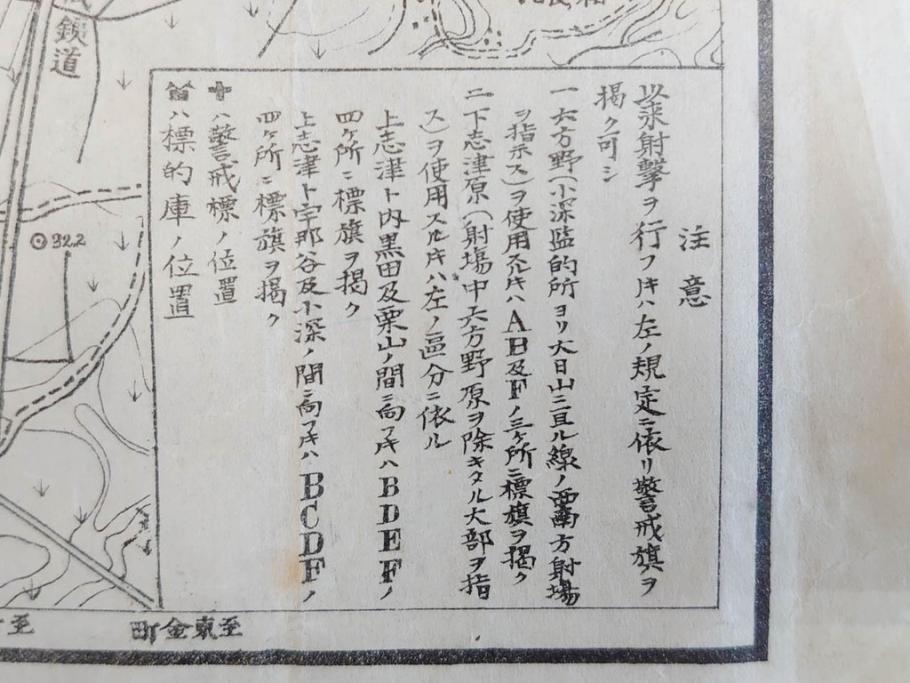 注意
以来射撃ヲ行フ𪜈ハ左ノ規定ニ依リ警戒旗ヲ
掲ク可シ
一六方野(小深監的所ヨリ大日山ニ亘ル線ノ西南方射場
ヲ指示ス)ヲ使用スル𪜈ハAB及Fノ三ヶ所ニ標旗ヲ掲ク
二下志津原(射場中六方野原ヲ除キタル大部ヲ指
ス)ヲ使用スル𪜈ハ左ノ區分ニ依ル
上志津ト内黒田及栗山ノ間ニ向フ𪜈ハBDEFノ
四ヶ所ニ標旗ヲ掲ク
上志津ト宇那谷及小深ノ間ニ向フ𪜈ハBCDFノ
四ヶ所ニ標旗ヲ掲ク
ハ警戒標ノ位置
ハ標的庫ノ位置
鉄道
32.2
至東金町
至